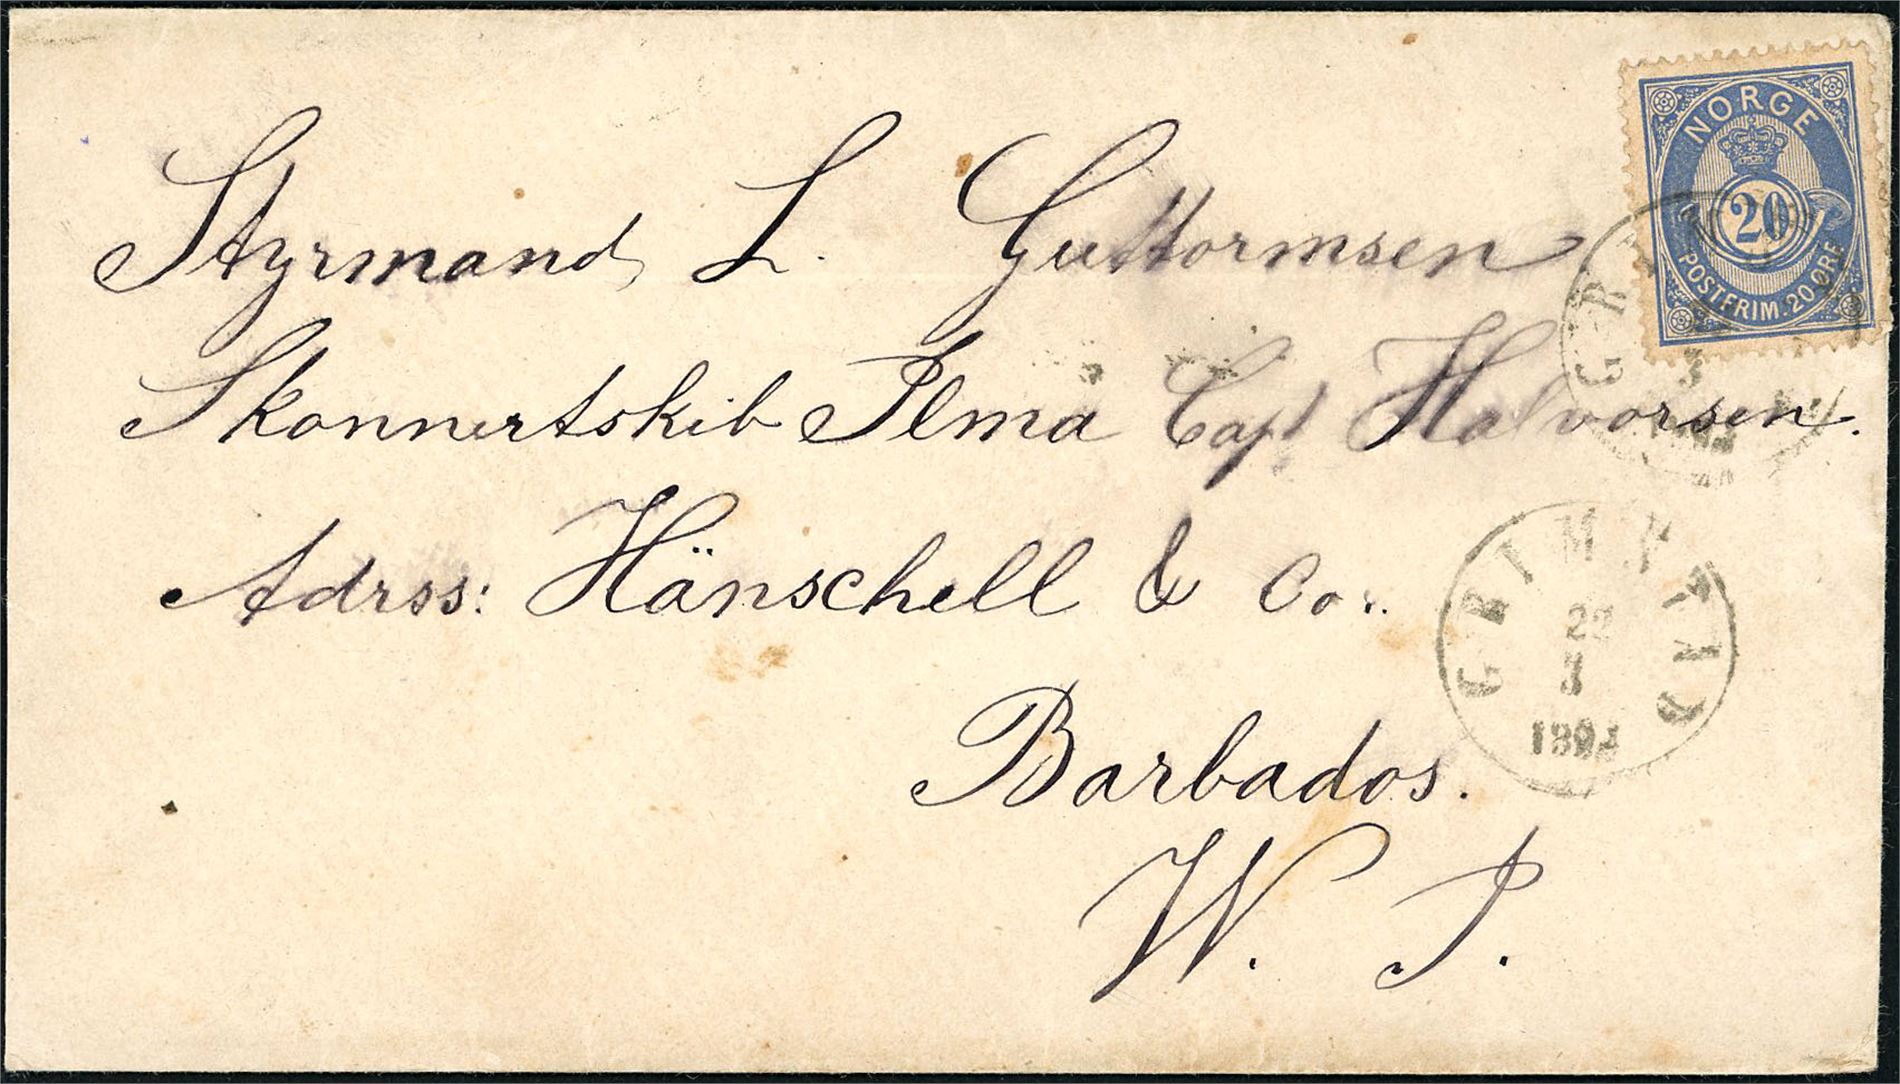 NORGE
20
POSTFRIM. 20 ØRE
Styrmand L. Guttormsen
Skonnertskib Ilma Capt Halvorsen.
Adrss: Hänschell & Co.
GRIMSTAD
22
3
Barbados.
W. I.